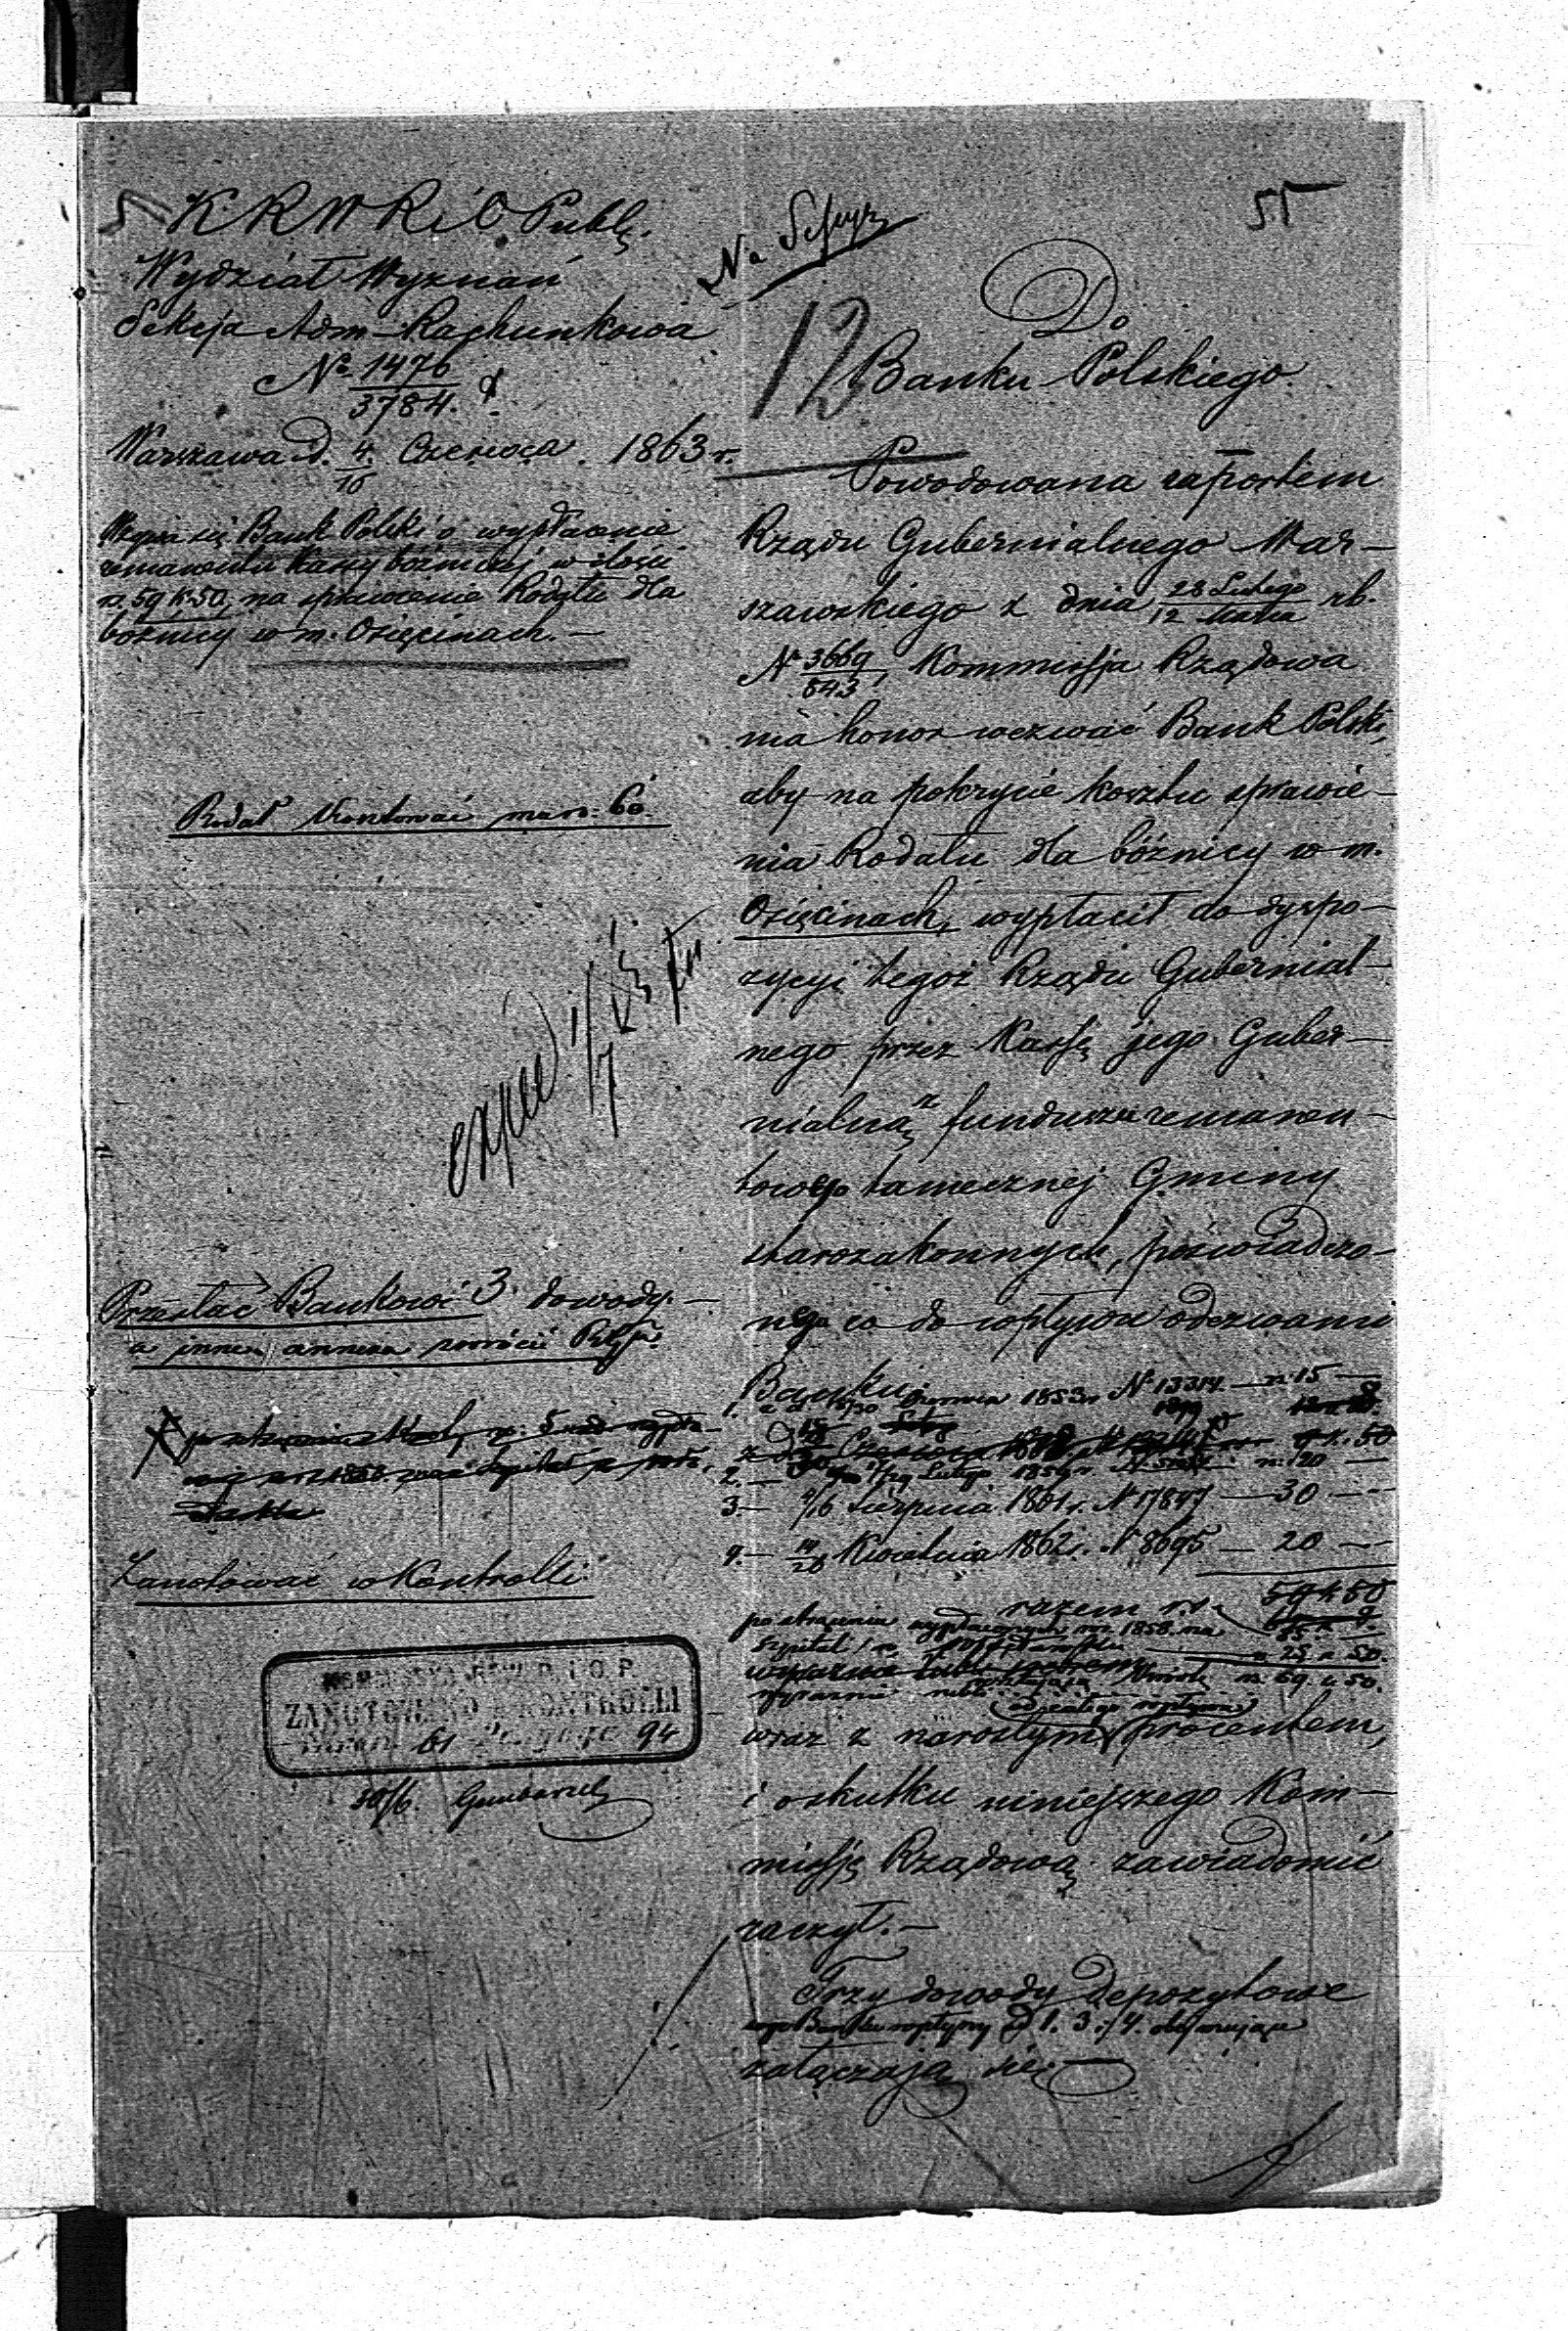 55
KRWR i O Publ.
Wydział Wyznań
Sekcja Adm-Rachunkowa
№ 1476
3784.
Warszawa d. 4/16 Czerwca 1863 r.
Wzywa się Bank Polski o wypłacenie
remanentu Kassy bóźniczej w ilości
rs. 59 k. 50, na sprawienie Rodału dla
bóźnicy w m. Osięcinach.—
Rodał kosztować ma rs: 60.
exped 1/7 63
Przesłać Bankowi 3 dowody.—
a innen annexa zwrócić
Zanotować w Kontrolli
ZANOTOWANO w KONTROLLI
61 94
30/6.
Na
12
Do
Banku Polskiego.
Powodowana raportem
Rządu Gubernialnego War-
szawskiego z dnia 28 Lutego/12 Marca rb.
N 3669/543, Kommissja Rządowa
ma honor wezwać Bank Polski,
aby na pokrycie kosztu sprawie-
nia Rodału dla bóźnicy w m.
Osięcinach, wypłacił do dyspo-
zycyi tegoż Rządu Gubernial-
nego przez Kassę jego Guber-
nialną z funduszu remanen-
towego tamecznej Gminy
starozakonnych, poświadczo-
nego co do wpływu odezwami
Banku:
1. z d. 18/30 1853 r. N 13314. — rs. 15 —
2. — 17/29 Lutego 1859 r. rs. 20 —
3. — 4/16 Sierpnia 1861 r. N 17847 — 30 —
4. — 14/26 Kwietnia 1862. N 8695 — 20 —
razem rs. 59 k 50
po strąceniu wypłaconych w r. 1858. na
szpital rs. 25 k. 50.
rs. 59. k. 50.
wraz z narosłym od całego wpływu procentem,
i o skutku niniejszego Kom-
missję Rządową zawiadomić
raczył.—
Trzy dowody depozytowe
Banku wpływy ad 1. 3. i 4. obejmujące
załączają się.—